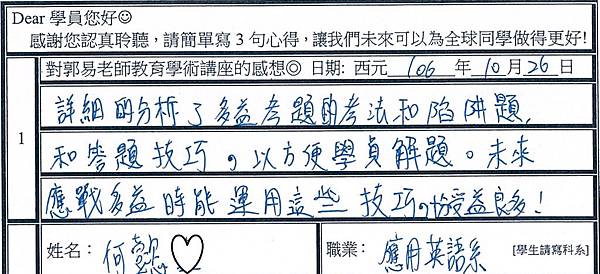 Dear 學員您好☺
感謝您認真聆聽，請簡單寫 3 句心得，讓我們未來可以為全球同學做得更好!
對郭易老師教育學術講座的感想◎ 日期: 西元 106 年 10 月 26 日
1
詳細的分析了多益考題的考法和陷阱題，
和答題技巧，以方便學員解題。未來
應戰多益時能運用這些技巧，受益良多！
姓名： 何懿♡
職業： 應用英語系 [學生請寫科系]